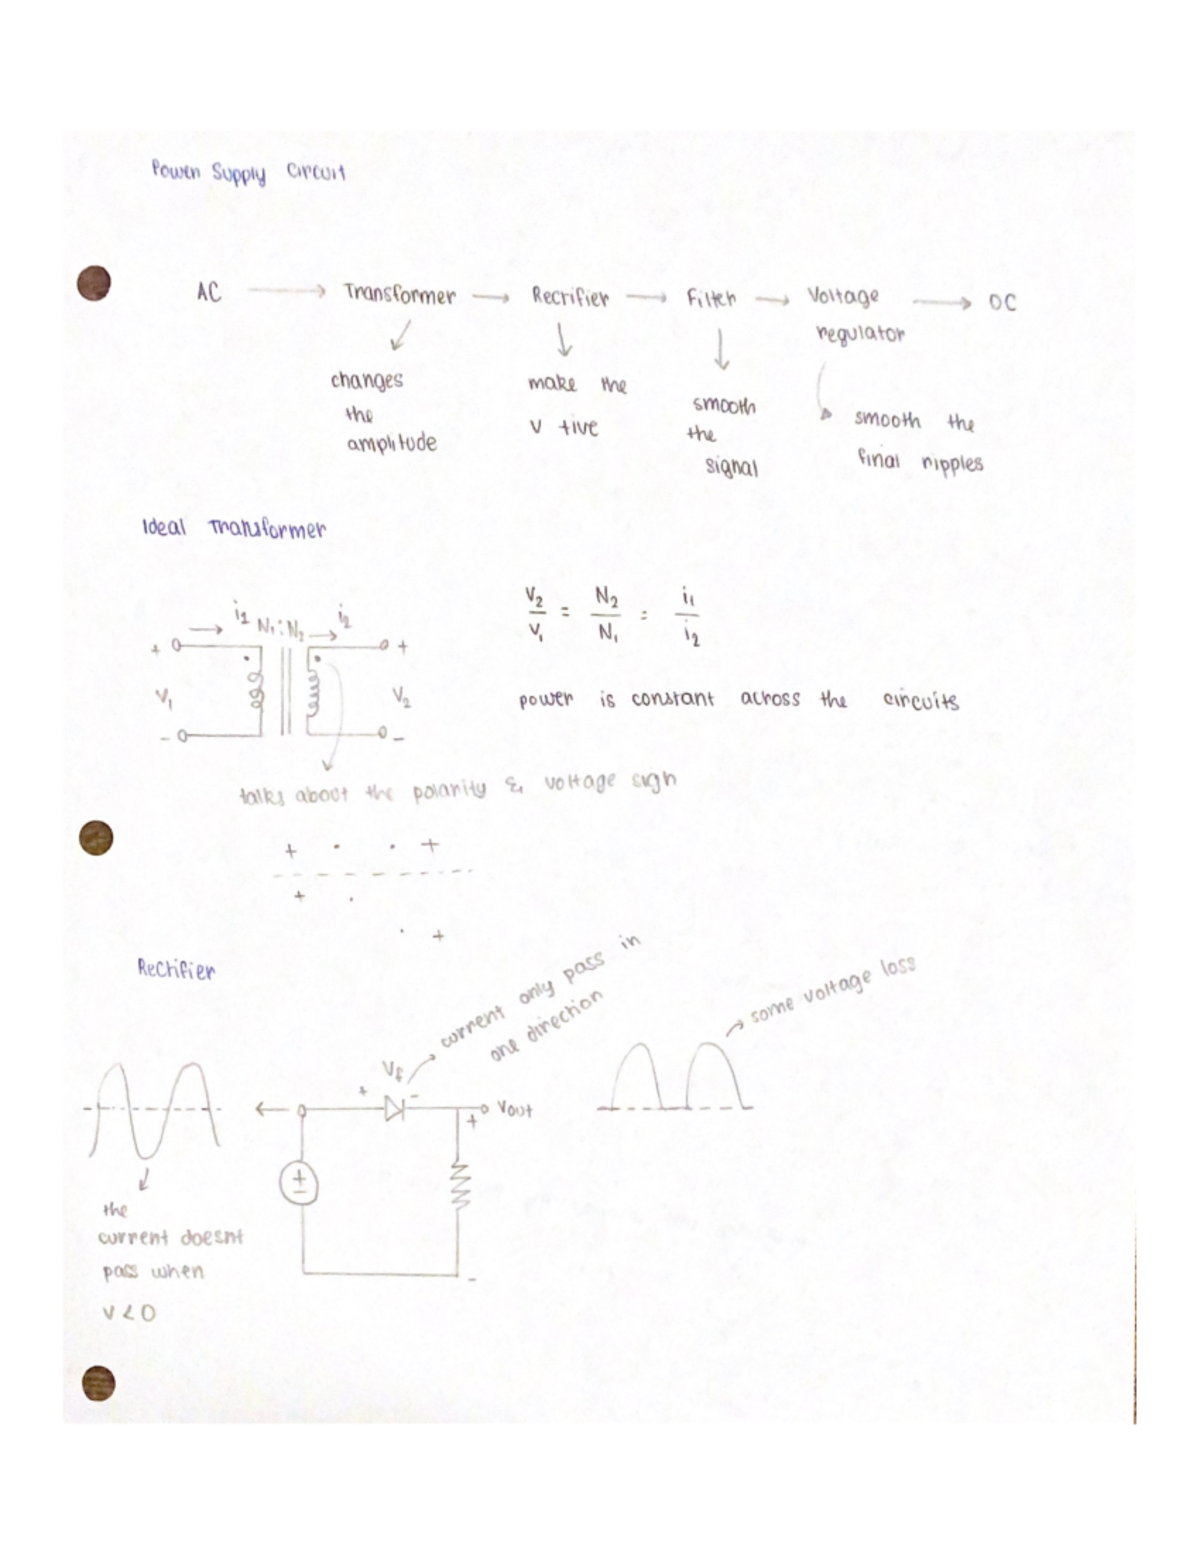 Power Supply Circuit
AC → Transformer → Recrifier → Filter → Voltage regulator → DC
changes
the
amplitude
make the
v +ive
smooth
the
signal
smooth the
final ripples
Ideal Transformer
i1 N1:N2 i2
+ +
V1 V2
- -
V2/V1 = N2/N1 = i1/i2
power is constant across the circuits
talks about the polarity & voltage sign
+ . . +
+ .
. +
Rectifier
current only pass in
one direction
some voltage loss
Vf
+ -
Vout
+
+
-
the
current doesnt
pass when
v < 0